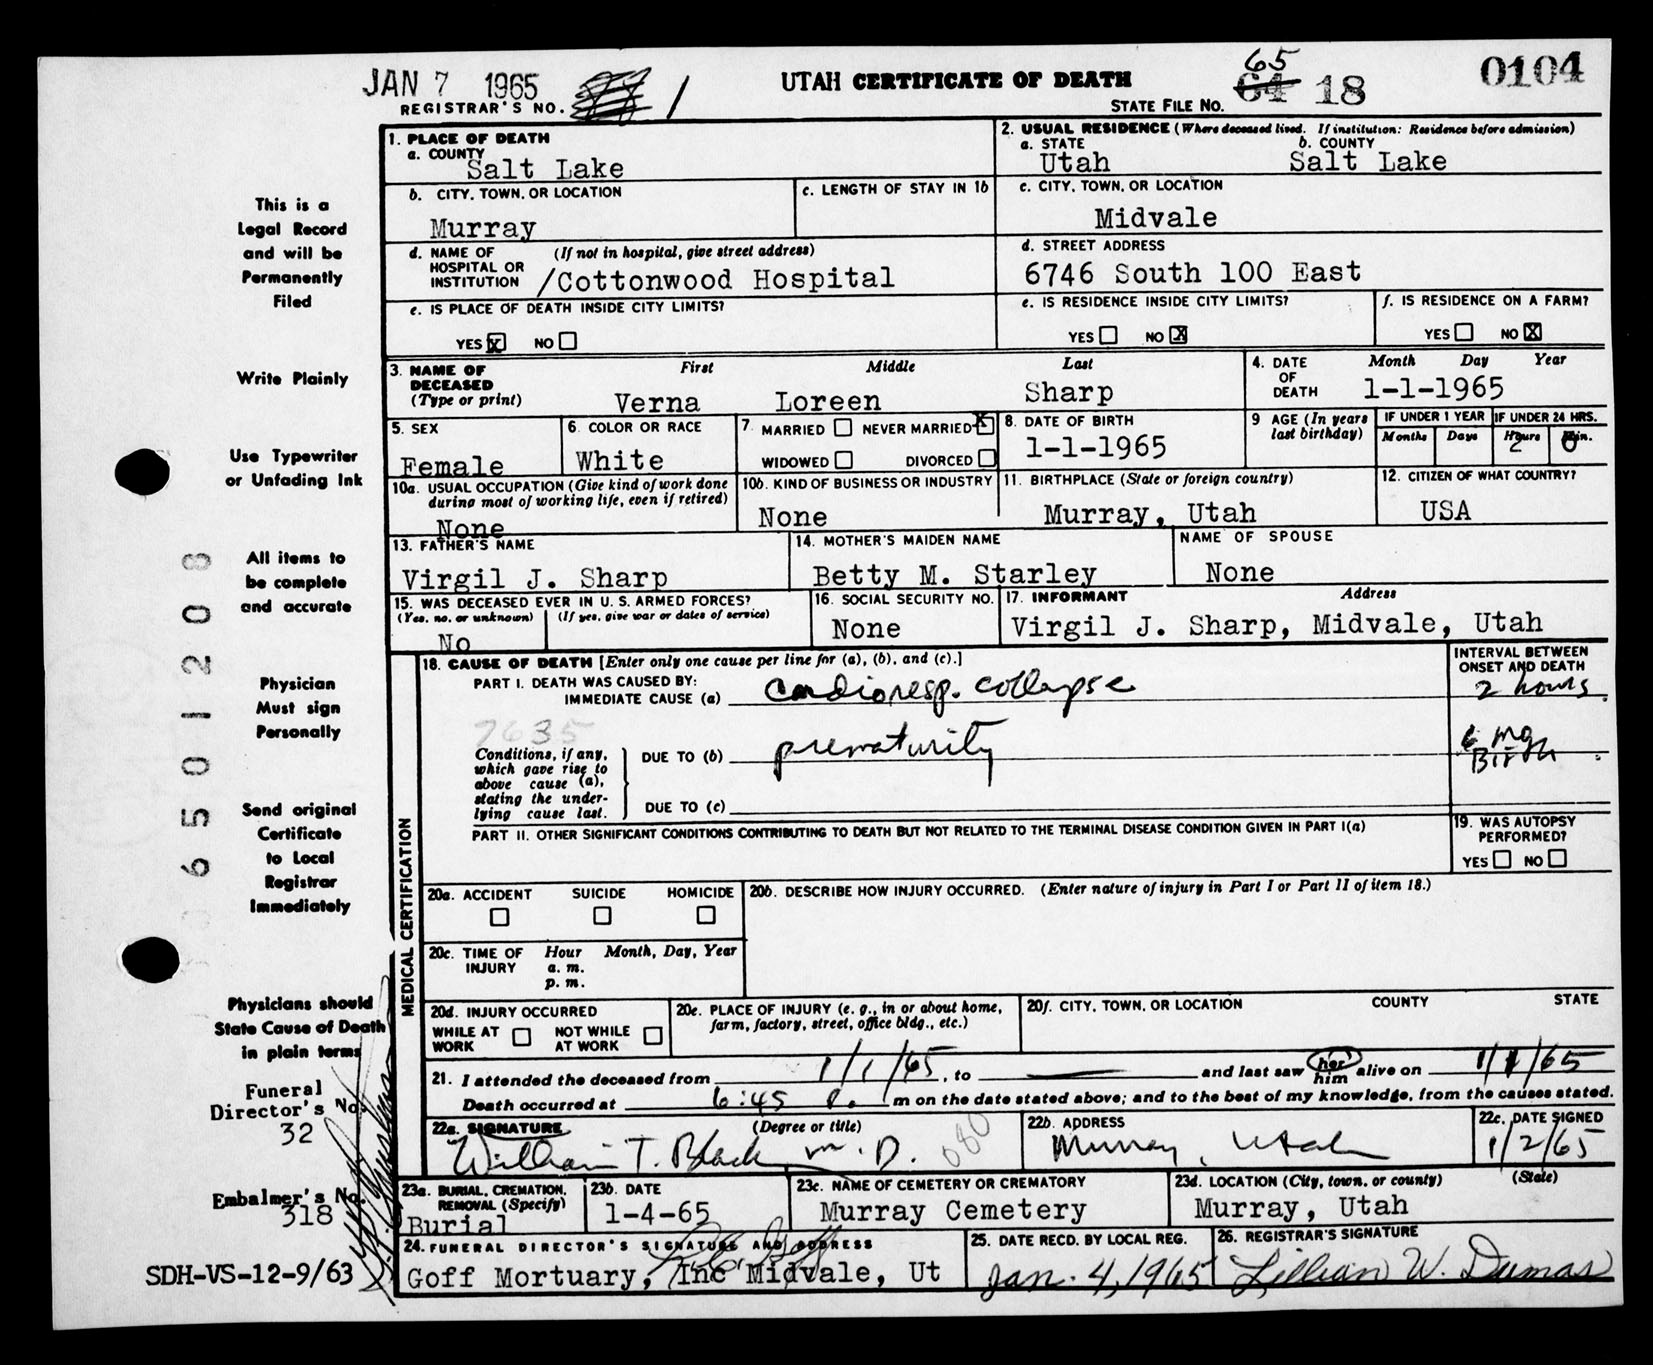 JAN 7 1965
REGISTRAR'S NO. 1
UTAH CERTIFICATE OF DEATH
65
STATE FILE NO. 64 18
0104
1. PLACE OF DEATH
a. COUNTY
Salt Lake
2. USUAL RESIDENCE (Where deceased lived. If institution: Residence before admission)
a. STATE b. COUNTY
Utah Salt Lake
b. CITY, TOWN, OR LOCATION
Murray
c. LENGTH OF STAY IN 1b
c. CITY, TOWN, OR LOCATION
Midvale
d. NAME OF HOSPITAL OR INSTITUTION (If not in hospital, give street address)
/Cottonwood Hospital
d. STREET ADDRESS
6746 South 100 East
e. IS PLACE OF DEATH INSIDE CITY LIMITS?
YES X NO
e. IS RESIDENCE INSIDE CITY LIMITS?
YES NO X
f. IS RESIDENCE ON A FARM?
YES NO X
3. NAME OF DECEASED (Type or print)
First Middle Last
Verna Loreen Sharp
4. DATE OF DEATH
Month Day Year
1-1-1965
5. SEX
Female
6. COLOR OR RACE
White
7. MARRIED NEVER MARRIED X
WIDOWED DIVORCED
8. DATE OF BIRTH
1-1-1965
9 AGE (In years last birthday)
IF UNDER 1 YEAR
Months Days
IF UNDER 24 HRS.
Hours Min.
2 0
10a. USUAL OCCUPATION (Give kind of work done during most of working life, even if retired)
None
10b. KIND OF BUSINESS OR INDUSTRY
None
11. BIRTHPLACE (State or foreign country)
Murray, Utah
12. CITIZEN OF WHAT COUNTRY?
USA
13. FATHER'S NAME
Virgil J. Sharp
14. MOTHER'S MAIDEN NAME
Betty M. Starley
NAME OF SPOUSE
None
15. WAS DECEASED EVER IN U. S. ARMED FORCES?
(Yes, no, or unknown) (If yes, give war or dates of service)
No
16. SOCIAL SECURITY NO.
None
17. INFORMANT Address
Virgil J. Sharp, Midvale, Utah
MEDICAL CERTIFICATION
18. CAUSE OF DEATH [Enter only one cause per line for (a), (b), and (c).]
INTERVAL BETWEEN ONSET AND DEATH
PART I. DEATH WAS CAUSED BY:
IMMEDIATE CAUSE (a) cardioresp. collapse 2 hours
7635
Conditions, if any, which gave rise to above cause (a), stating the underlying cause last.
DUE TO (b) prematurity 6 mo Birth
DUE TO (c)
PART II. OTHER SIGNIFICANT CONDITIONS CONTRIBUTING TO DEATH BUT NOT RELATED TO THE TERMINAL DISEASE CONDITION GIVEN IN PART I(a)
19. WAS AUTOPSY PERFORMED?
YES NO
20a. ACCIDENT SUICIDE HOMICIDE
20b. DESCRIBE HOW INJURY OCCURRED. (Enter nature of injury in Part I or Part II of item 18.)
20c. TIME OF INJURY Hour Month, Day, Year
a. m.
p. m.
20d. INJURY OCCURRED
WHILE AT WORK NOT WHILE AT WORK
20e. PLACE OF INJURY (e. g., in or about home, farm, factory, street, office bldg., etc.)
20f. CITY, TOWN, OR LOCATION COUNTY STATE
21. I attended the deceased from 1/1/65, to — and last saw her him alive on 1/1/65
Death occurred at 6:45 P. m on the date stated above; and to the best of my knowledge, from the causes stated.
22a. SIGNATURE (Degree or title)
William T. Black M.D. 080
22b. ADDRESS
Murray, Utah
22c. DATE SIGNED
1/2/65
23a. BURIAL, CREMATION, REMOVAL (Specify)
Burial
23b. DATE
1-4-65
23c. NAME OF CEMETERY OR CREMATORY
Murray Cemetery
23d. LOCATION (City, town, or county) (State)
Murray, Utah
24. FUNERAL DIRECTOR'S SIGNATURE AND ADDRESS
Goff Mortuary, Inc Midvale, Ut
25. DATE RECD. BY LOCAL REG.
Jan. 4, 1965
26. REGISTRAR'S SIGNATURE
Lillian W. Dumas
This is a
Legal Record
and will be
Permanently
Filed
Write Plainly
Use Typewriter
or Unfading Ink
All items to
be complete
and accurate
Physician
Must sign
Personally
Send original
Certificate
to Local
Registrar
Immediately
Physicians should
State Cause of Death
in plain terms
Funeral
Director's No.
32
Embalmer's No.
318
SDH-VS-12-9/63
6501208